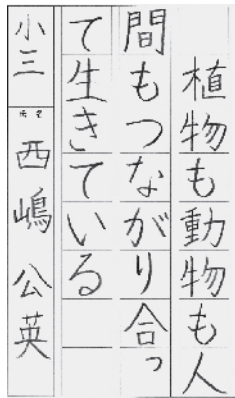 植物も動物も人
間もつながり合っ
て生きている
小三 氏名 西嶋 公英